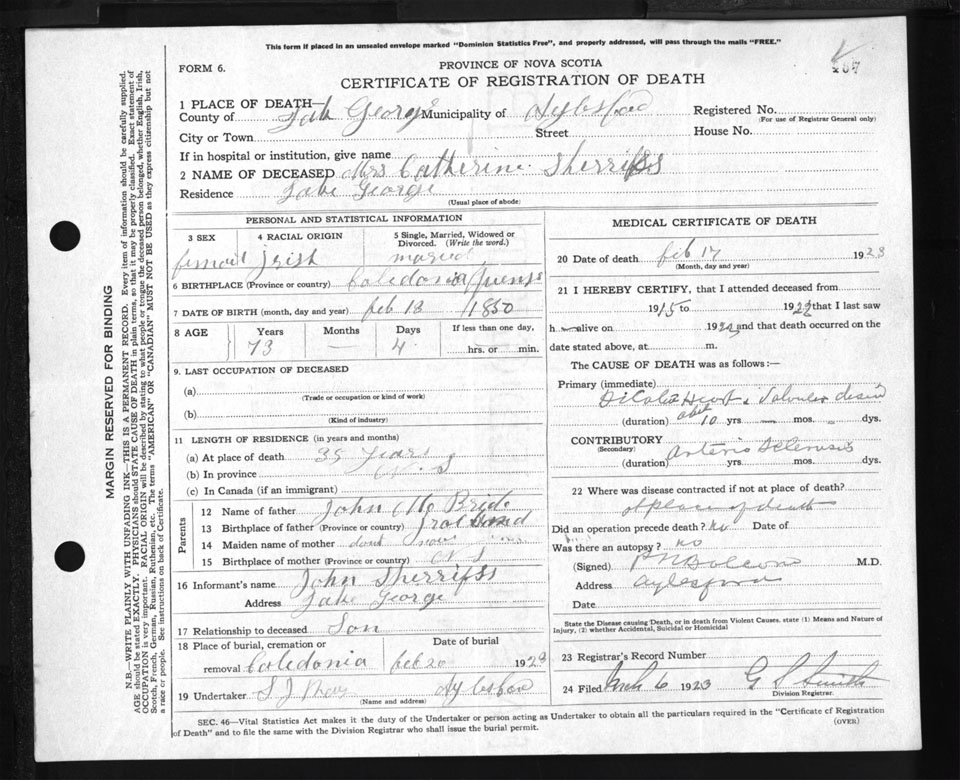 This form if placed in an unsealed envelope marked "Dominion Statistics Free", and properly addressed, will pass through the mails "FREE."
FORM 6.
PROVINCE OF NOVA SCOTIA
CERTIFICATE OF REGISTRATION OF DEATH
1 PLACE OF DEATH—
County of Lake George Municipality of Aylesford Registered No.
(For use of Registrar General only)
City or Town Street House No.
If in hospital or institution, give name
2 NAME OF DECEASED Mrs Catherine Sherriffs
Residence Lake George
(Usual place of abode)
PERSONAL AND STATISTICAL INFORMATION
3 SEX 4 RACIAL ORIGIN 5 Single, Married, Widowed or Divorced. (Write the word.)
female Irish married
6 BIRTHPLACE (Province or country) Caledonia Queens
7 DATE OF BIRTH (month, day and year) Feb 13 1850
8 AGE Years Months Days If less than one day,
73 — 4 hrs. or min.
9. LAST OCCUPATION OF DECEASED
(a)
(Trade or occupation or kind of work)
(b)
(Kind of industry)
11 LENGTH OF RESIDENCE (in years and months)
(a) At place of death 35 years
(b) In province N. S
(c) In Canada (if an immigrant)
Parents
12 Name of father John Mc Bride
13 Birthplace of father (Province or country)
14 Maiden name of mother dont
15 Birthplace of mother (Province or country) N S
16 Informant's name John Sherriffs
Address Lake George
17 Relationship to deceased Son
18 Place of burial, cremation or removal Caledonia Date of burial Feb 20 1923
19 Undertaker S J Aylesford
(Name and address)
MEDICAL CERTIFICATE OF DEATH
20 Date of death Feb 17 1923
(Month, day and year)
21 I HEREBY CERTIFY, that I attended deceased from
1915 to 1922 that I last saw
h alive on 192 and that death occurred on the
date stated above, at m.
The CAUSE OF DEATH was as follows:—
Primary (immediate)
Heart Valvular
(duration) 10 yrs mos. dys.
CONTRIBUTORY Arterio Sclerosis
(Secondary)
(duration) yrs mos. dys.
22 Where was disease contracted if not at place of death?
at place of death
Did an operation precede death? no Date of
Was there an autopsy? no
(Signed) M.D.
Address Aylesford
Date
State the Disease causing Death, or in death from Violent Causes, state (1) Means and Nature of
Injury, (2) whether Accidental, Suicidal or Homicidal
23 Registrar's Record Number
24 Filed Mch 6 1923 G S Smith
Division Registrar.
SEC. 46—Vital Statistics Act makes it the duty of the Undertaker or person acting as Undertaker to obtain all the particulars required in the "Certificate of Registration
of Death" and to file the same with the Division Registrar who shall issue the burial permit.
(OVER)
MARGIN RESERVED FOR BINDING
N.B.—WRITE PLAINLY WITH UNFADING INK—THIS IS A PERMANENT RECORD. Every item of information should be carefully supplied.
AGE should be stated EXACTLY. PHYSICIANS should STATE CAUSE OF DEATH in plain terms, so that it may be properly classified. Exact statement of
OCCUPATION is very important. RACIAL ORIGIN will be described by stating to what people or tongue the deceased person belonged, whether English, Irish,
Scotch, French, German, Russian, Ruthenian, etc. The terms "AMERICAN" OR "CANADIAN" MUST NOT BE USED as they express citizenship but not
a race or people. See instructions on back of Certificate.